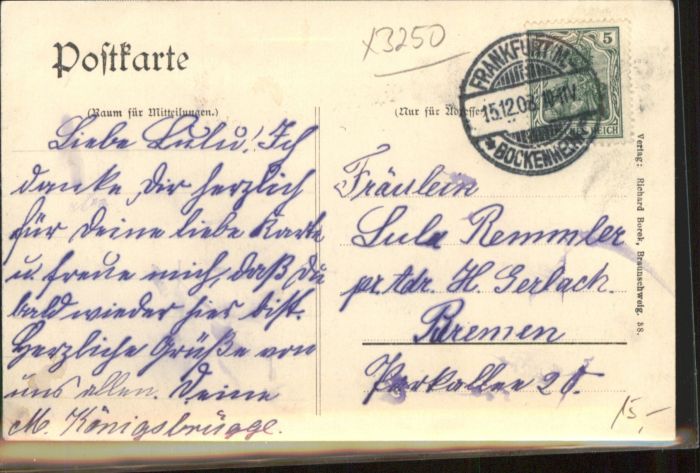 x3250
Postkarte
(Raum für Mitteilungen.)
(Nur für Adresse
FRANKFURT (M.)
15.12.08. 10-11V.
* BOCKENHEIM
5
REICH
Liebe Lulu! Ich
danke Dir herzlich
für Deine liebe Karte
u. freue mich, daß Du
bald wieder hier bist.
Herzliche Grüße von
uns allen. Deine
M. Königsbrügge.
Fräulein
Lula Remmler
pr. Adr. H. Gerlach.
Bremen
Parkallee 25.
Verlag: Richard Borek, Braunschweig. 58.
15,-